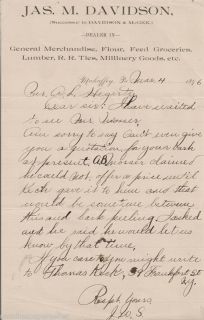 JAS. M. DAVIDSON,
(SUCCESSOR TO DAVIDSON & McGEE,)
DEALER IN
General Merchandise, Flour, Feed Groceries,
Lumber, R. R. Ties, Millinery Goods, etc.
Pa. Mar 4
Dear sir. I have waited
to see
am sorry to say can't even give
you a quotation for your bark
at present, claimed
he could not offer a price until
Keck gave it to him and that
would be some time between
this and bark peeling. I asked
and he said he would let us
know by that time,
if you care to you might write
to Thomas Keck, Frankfort St
N.Y.
Respt. Yours